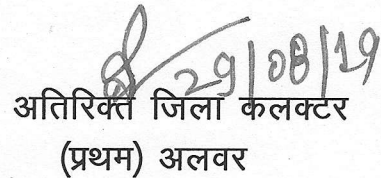 29/08/19
अतिरिक्त जिला कलक्टर
(प्रथम) अलवर